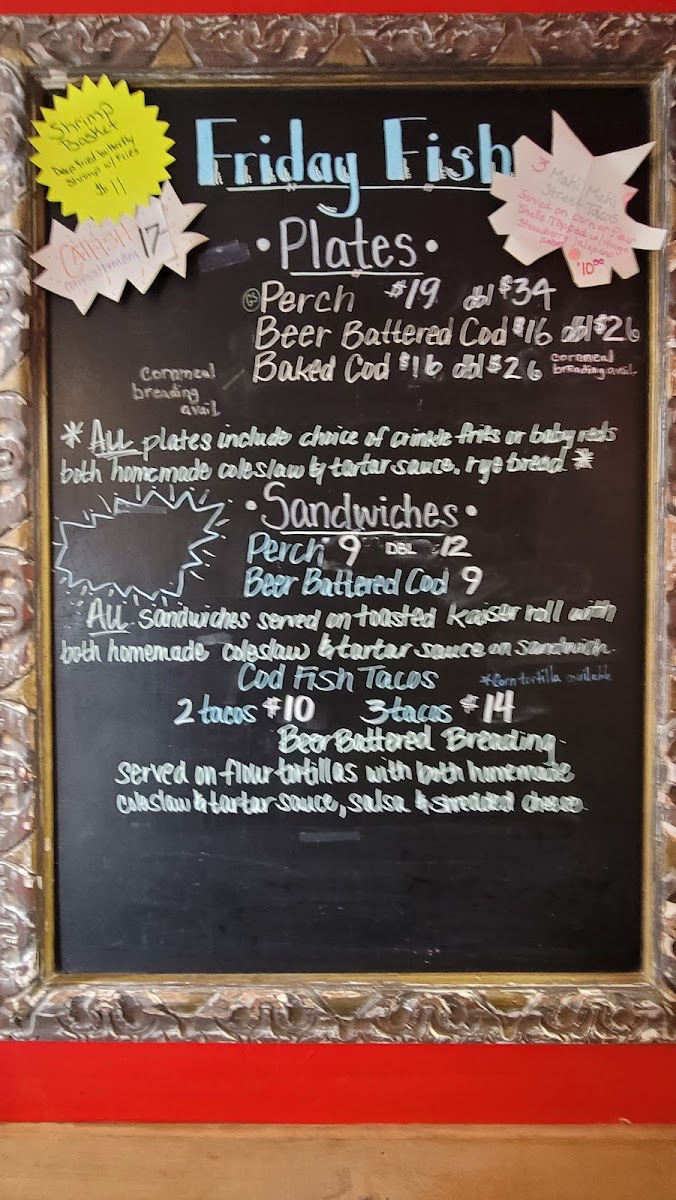 Shrimp
Basket
Deep fried butterfly
Shrimp w/ Fries
$11
CATFISH 17
cornmeal breading
Friday Fish
3 Mahi Mahi
Street Tacos
Served on corn or flour
Shells Topped w/ Mango
Strawberry Jalapeno
Salsa
$10.00
• Plates •
GS Perch $19 dbl $34
Beer Battered Cod $16 dbl $26
Baked Cod $16 dbl $26
cornmeal
breading avail.
cornmeal
breading
avail.
* ALL plates include choice of crinkle fries or baby reds
both homemade coleslaw & tartar sauce, rye bread *
• Sandwiches •
Perch 9 DBL 12
Beer Battered Cod 9
ALL sandwiches served on toasted kaiser roll with
both homemade coleslaw & tartar sauce on sandwich.
Cod Fish Tacos
*Corn tortilla available
2 tacos $10 3 tacos $14
Beer Battered Breading
served on flour tortillas with both homemade
coleslaw & tartar sauce, salsa & shredded cheese